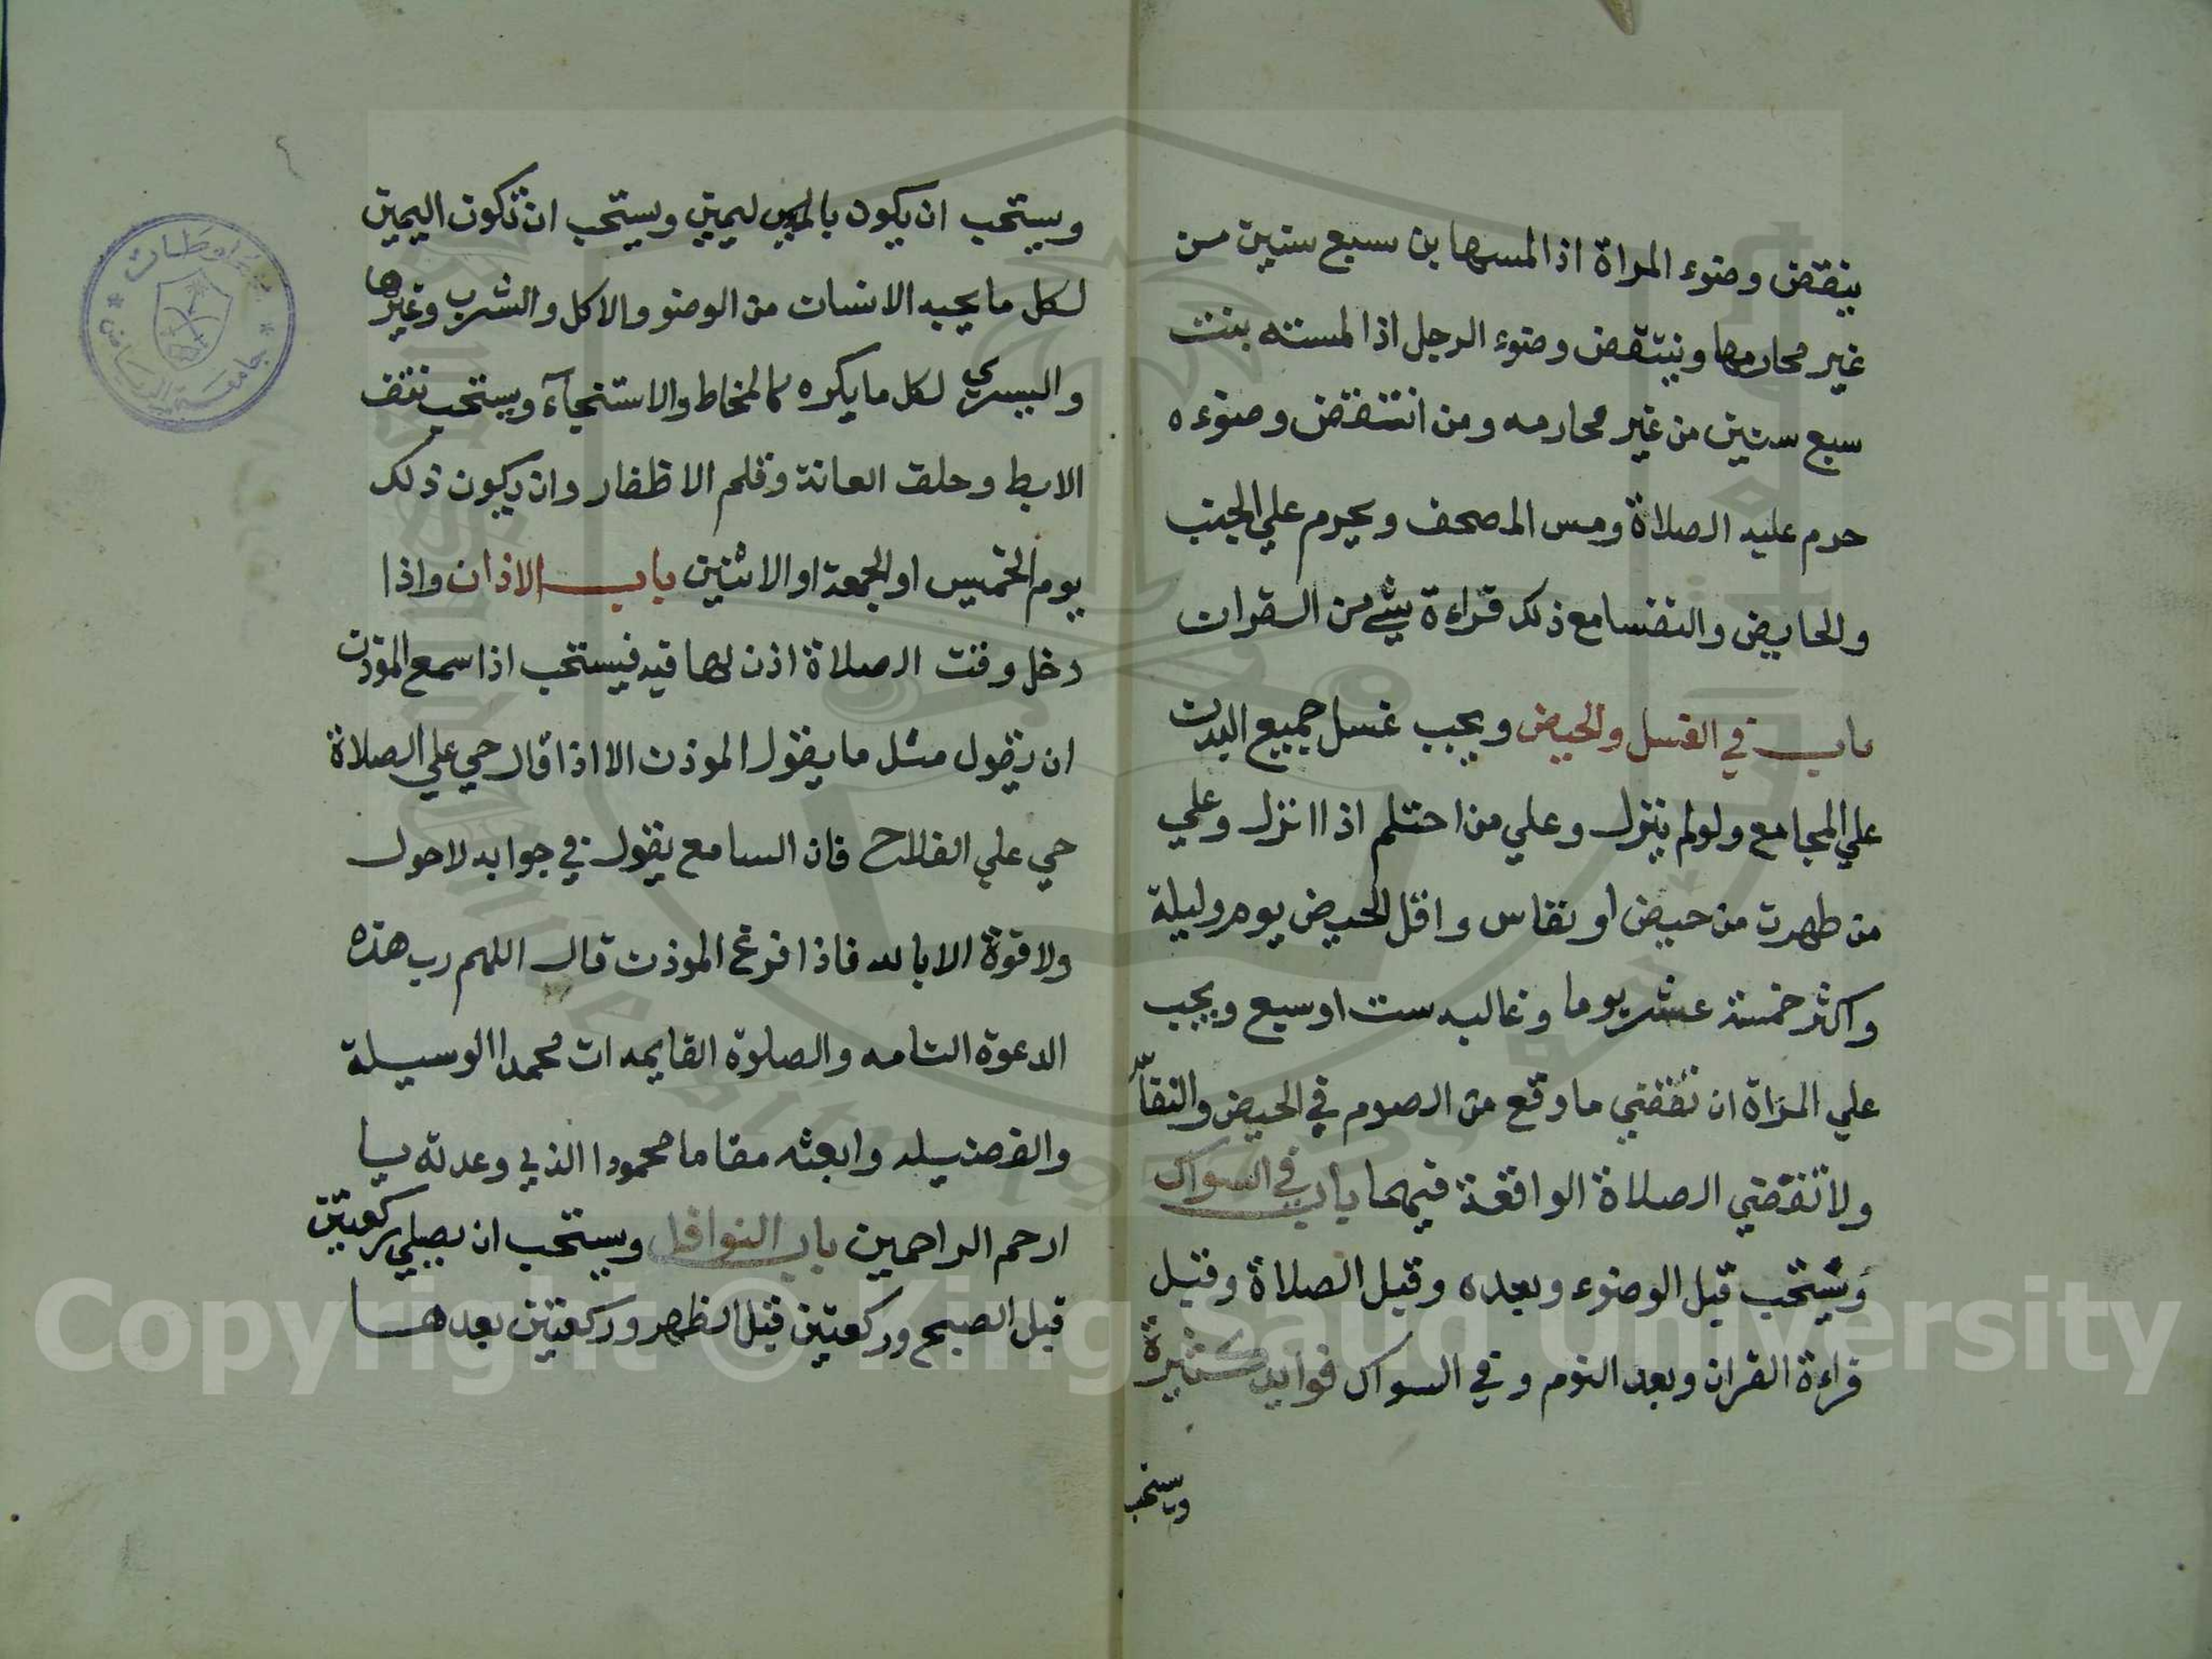 ينقض وضوء المراة اذا لمسها بن سبع سنين من
غير محارمها وينتقض وضوء الرجل اذا لمسته بنت
سبع سنين من غير محارمه ومن انتقض وضوءه
حرم عليه الصلاة ومس المصحف ويحرم علي الجنب
والحايض والنفسا مع ذلك قراءة شي من القران
باب في الغسل والحيض ويجب غسل جميع البدن
علي المجامع ولو لم ينزل وعلي من احتلم اذا انزل وعلي
من طهرت من حيض او نفاس واقل الحيض يوم وليلة
واكثر خمسة عشر يوما وغالبه ست او سبع ويجب
علي المراة ان تقضي ما وقع من الصوم في الحيض والنفاس
ولا تقضي الصلاة الواقعة فيهما باب في السواك
ويستحب قبل الوضوء وبعده وقبل الصلاة وقبل
قراءة القران وبعد النوم وفي السواك فوايد كثيرة
ويستحب
ويستحب ان يكون ليمين ويستحب ان تكون اليمين
لكل ما يحبه الانسان من الوضو والاكل والشرب وغيرها
واليسري لكل ما يكره كالمخاط والاستنجآء ويستحب نتف
الابط وحلق العانة وقلم الاظفار وان يكون ذلك
يوم الخميس او الجمعة او الاثنين باب الاذان واذا
دخل وقت الصلاة اذن لها فيه فيستحب اذا سمع الموذن
ان يقول مثل ما يقول الموذن الا اذا قال حي علي الصلاة
حي علي الفلاح فان السامع يقول في جوابه لا حول
ولا قوة الا بالله فاذا فرغ الموذن قال اللهم رب هذه
الدعوة التامه والصلوة القايمه ات محمدا الوسيلة
والفضيله وابعثه مقاما محمودا الذي وعدته يا
ارحم الراحمين باب النوافل ويستحب ان يصلي ركعتين
قبل الصبح وركعتين قبل الظهر وركعتين بعدها
جامعة الرياض
Copyright © King Saud University